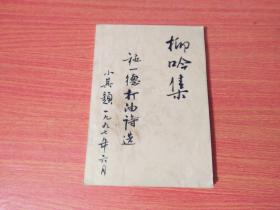 柳吟集
延一德打油诗选
小其题 一九九七年六月